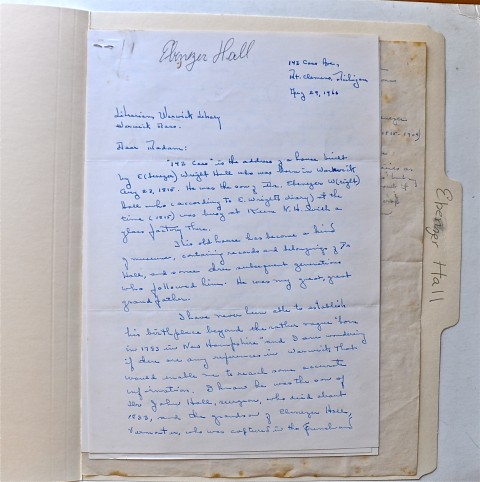 Ebenezer Hall
143 Cass Ave,
Mt. Clemens, Michigan
May 29, 1966
Librarian, Warwick Library
Warwick Mass.
Dear Madam:
"143 Cass" is the address of a house built
by E(benezer) Wright Hall who was born in Warwick
Aug 23, 1815. He was the son of Dr. Ebenezer W(right)
Hall who (according to E. Wright's diary) at the
time (1815) was busy at Keene N.H. with a
glass factory there.
This old house has become a kind
of museum, containing records and belongings of Dr
Hall, and some three subsequent generations
who followed him. He was my great, great
grandfather.
I have never been able to establish
his birthplace beyond the rather vague "born
in 1783 in New Hampshire" and I am wondering
if there are any references in Warwick that
would enable me to reach some accurate
information. I know he was the son of
Dr John Hall, surgeon, who died about
and the grandson of Ebenezer Hall,
who was captured in the French and
Ebenezer Hall